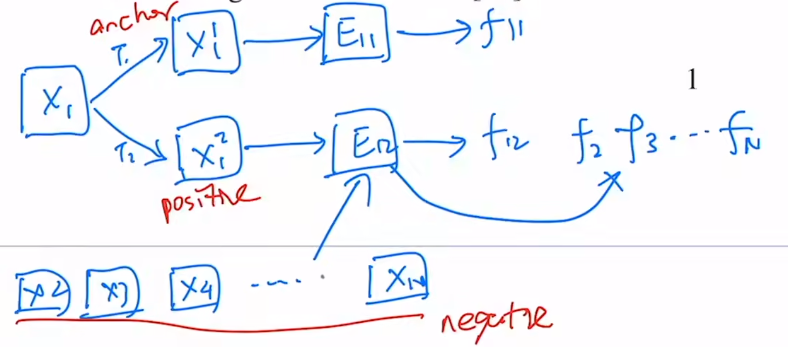 anchor
T₁ X₁¹ E₁₁ f₁₁
X₁
1
T₂ X₁² E₁₂ f₁₂ f₂ f₃ ... fN
positive
X2 X3 X4 ..... XN
negative